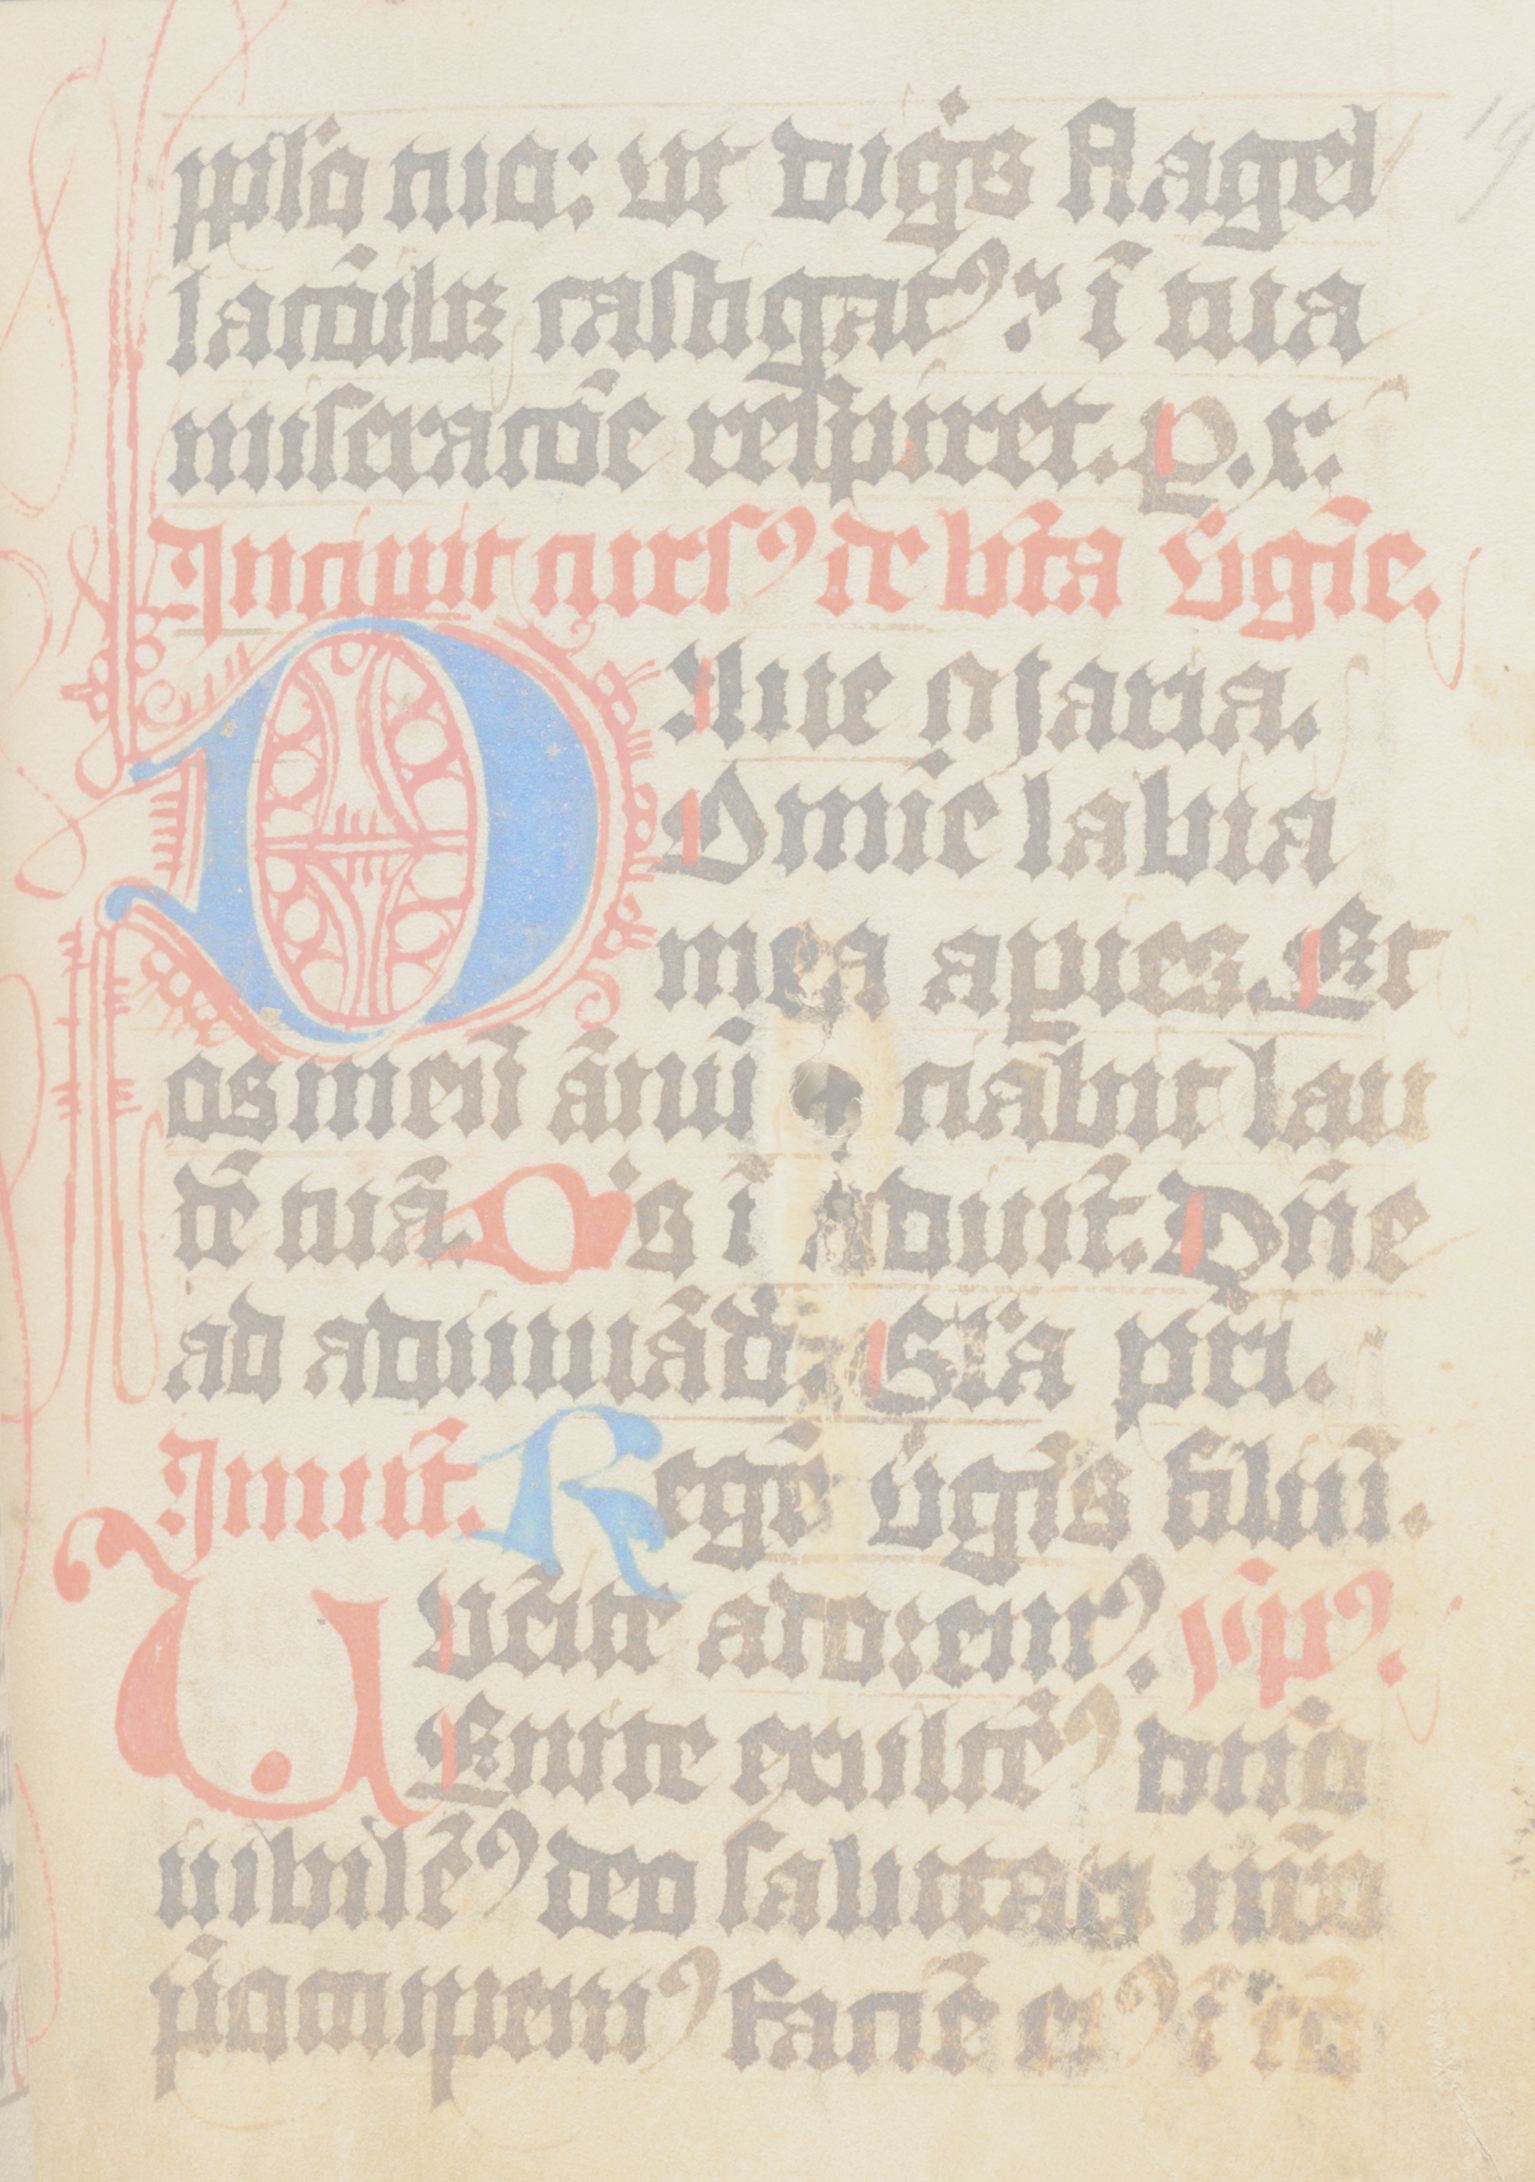 ppl'o tuo: ut dig'is flagel
lac̄oibꝫ castigatꝰ: ī tua
miserac̄ōe respiret. P. x.
Incipit cursꝰ de bt̄a v̄gīe.
Aue Maria.
Domīe labia
mea apies. Et
os meū ānūc̄iabit lau
dē tuā. Dꝰs ī adiut̄. Dn̄e
ad adiuuād. Gl'a pr̄i.
Inuit̄. Regē v̄gīs filiū.
Venīte adoremꝰ. ps̄.
Enite exultēꝰ dn̄o
iubilēꝰ deo salutari nr̄o
p̄occupemꝰ faciē eiꝰ ī